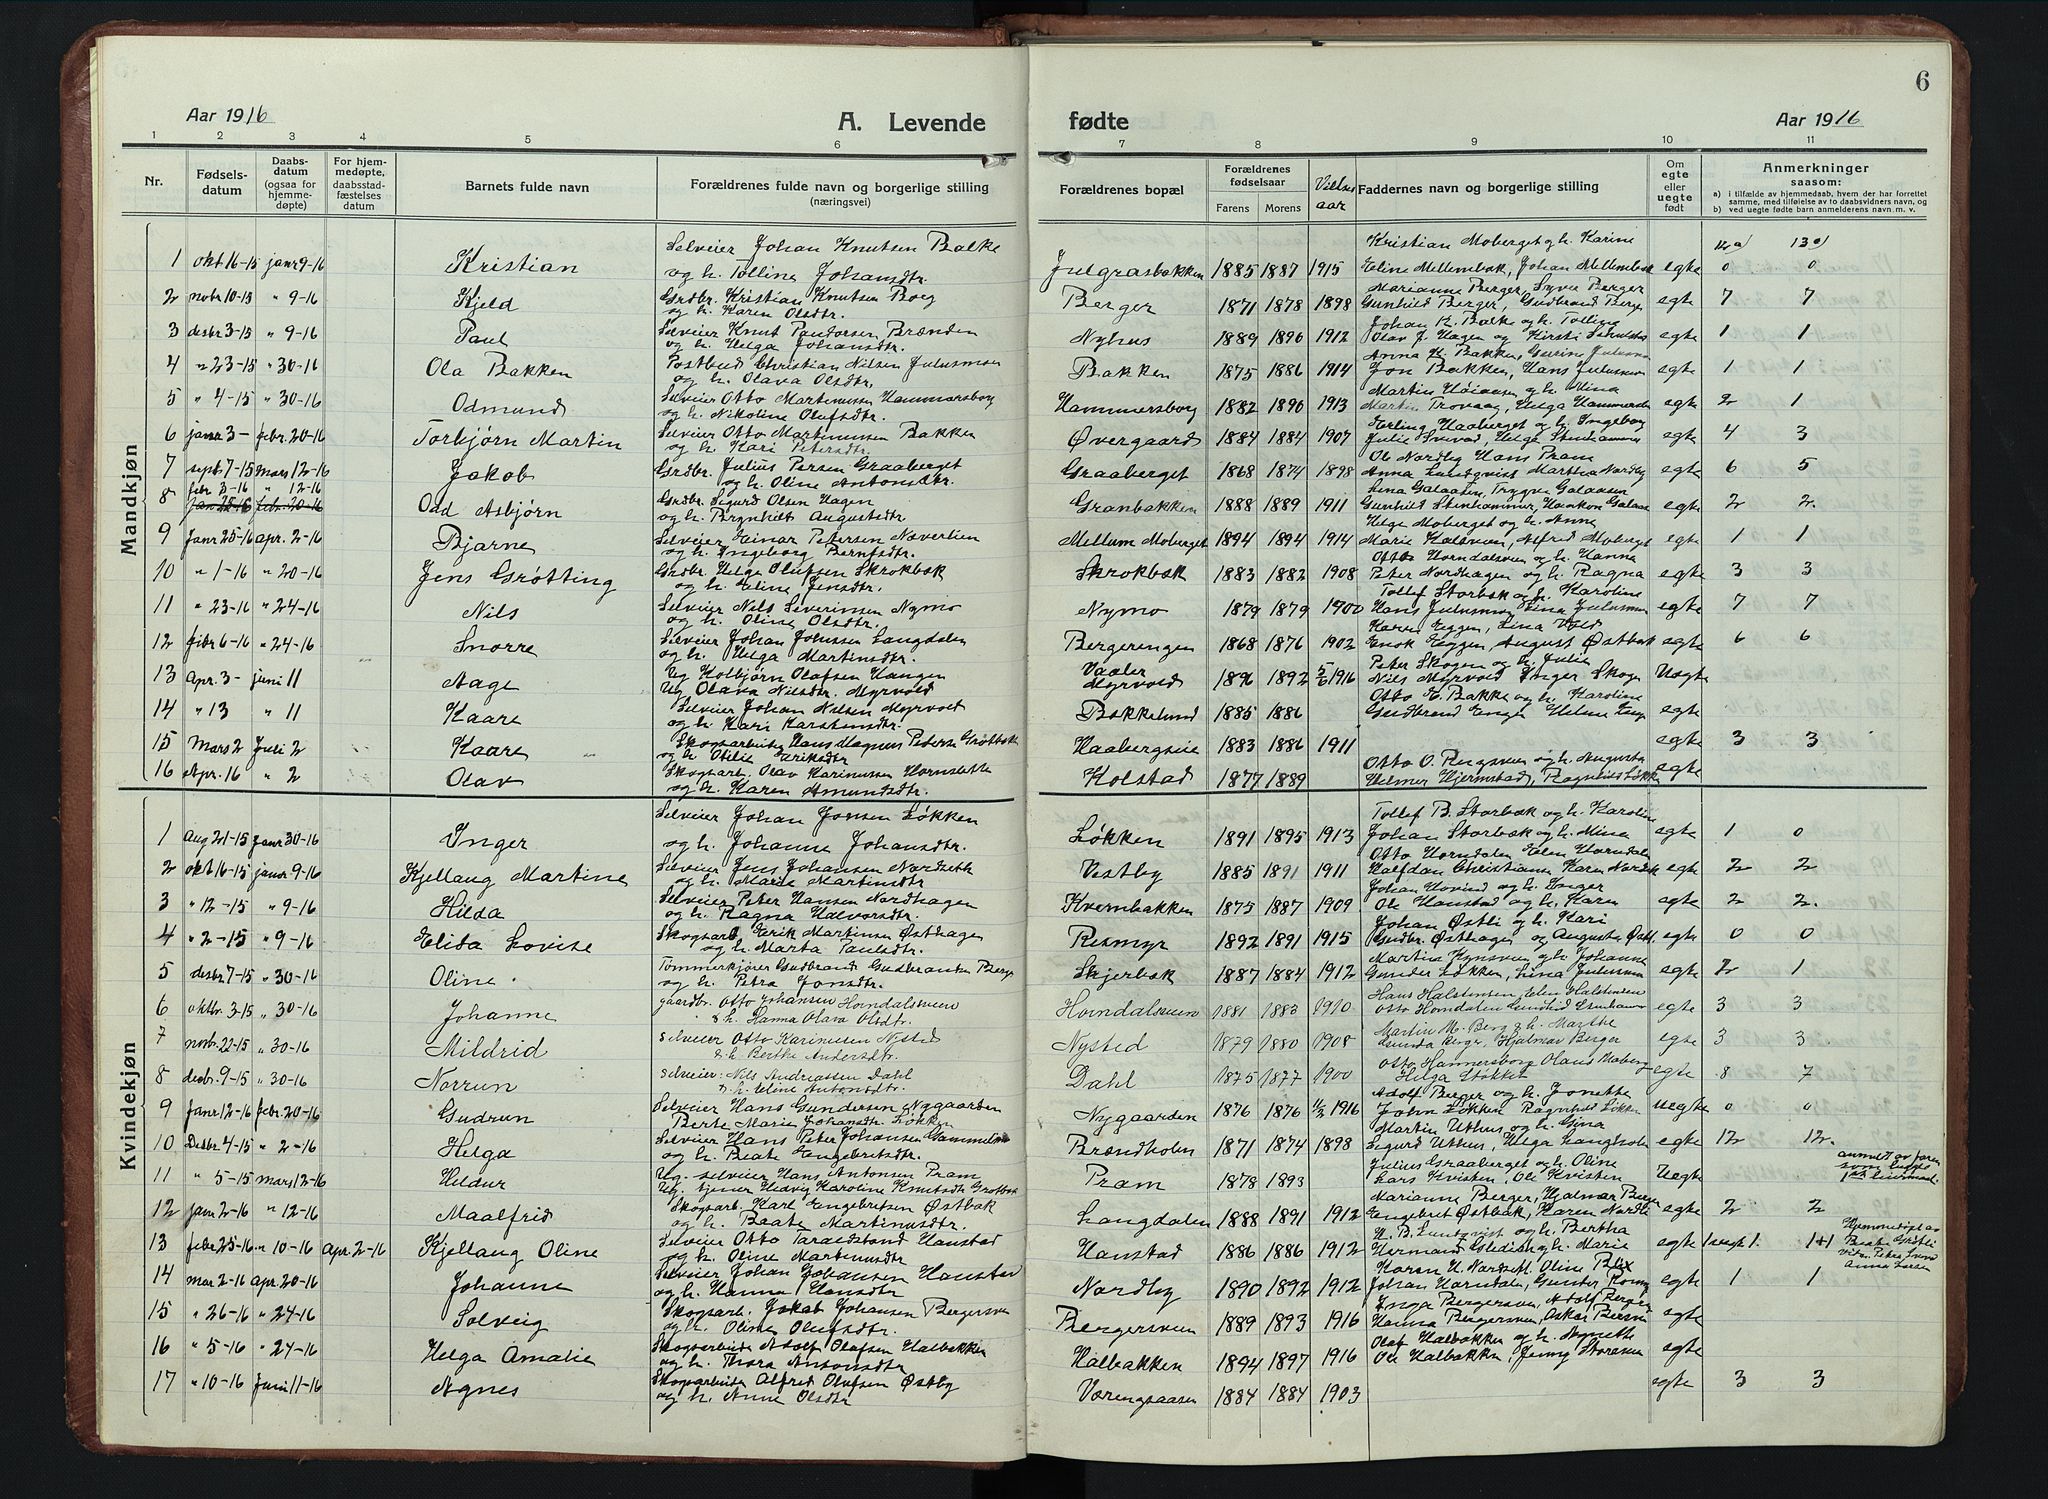 Aar 1916
A. Levende
1 2 3 4 5 6
Nr.
Fødsels-
datum
Daabs-
datum
(ogsaa for
hjemme-
døpte)
For hjem-
medøpte,
daabsstad-
fæstelses
datum
Barnets fulde navn
Forældrenes fulde navn og borgerlige stilling
(næringsvei)
Mandkjøn
Selveier Johan Knutsen Balke
1 okt 16-15 janr 9-16 Kristian og h. Tolline Johansdtr.
2 novbr. 10-15 " 9-16 Kjeld Grdbr. Kristian Knutsen Borg
og h. Karen Olsdtr.
3 desbr 3-15 " 9-16 Paul Selveier Knut Paulorsen Brænden
og h. Helga Johansdtr.
4 " 23-15 " 30-16 Ola Bakken Postbud Christian Nilsen Julusmoen
og h. Olava Olsdtr.
5 " 4-15 " 30-16 Odmund Selveier Otto Martinussen Hammersborg
og h. Nikoline Olufsdtr.
6 janr 3- febr. 20-16 Torbjørn Martin Selveier Otto Martinussen Bakken
og h. Kari Petersdtr.
7 septb. 7-15 Mars 12-16 Jakob Grdbr. Julius Persen Graaberget
og h. Oline Antonsdtr.
8 febr 3-16 " 12-16
Jan 25-16 febr. 20-16 Odd Asbjørn Grdbr. Sigurd Olsen Hagen
og h. Brynhilt Augustsdtr
9 Janr 25-16 apr. 2-16 Bjarne Selveier Einar Petersen Nøverlien
og h. Ingeborg Berntsdtr.
10 " 1-16 " 20-16 Jens Grøtting Grdbr. Helge Olufsen Skrokbæk
og h. Eline Jensdtr.
11 " 23-16 " 24-16 Nils Selveier Nils Severinsen Nymo
og h. Oline Olsdtr.
12 febr 6-16 " 24-16 Snorre Selveier Johan Johnssen Langdalen
og h. Helga Martinsdtr.
13 Apr. 3- juni 11 Aage Ug Kolbjørn Olafsen Haugen
Ug. Olava Nilsdtr. Myrvold
14 " 13 " 11 Kaare Selveier Johan Nilsen Myrvold
og h. Kari Karstensdtr.
15 Mars 2 Juli 2 Kaare Skogsarbeider Hans Magnus Peterse Grøtbæk
og h. Otilie Eriksdtr
16 Apr. 16 " 2 Olav Skogsarb. Olav Karinussen Hornslette
og h. Karen Amundsdtr.
Kvindekjøn
Selveier Johan Jonsen Løkken
1 Aug 21-15 Janr 30-16 Inger og h. Johanne Johansdtr.
2 okt 16-15 janr 9-16 Kjellaug Martine Selveier Jens Johansen Nordseth
og h. Marie Martinsdtr
3 " 12-15 " 9-16 Hilda Selveier Peter Hansen Nordhagen
og h. Ragna Halvorsdtr.
4 " 2-15 " 9-16 Elida Lovise Skogsarb. Erik Martinsen Østhagen
og h. Marta Paulsdtr.
5 desbr 7-15 " 30-16 Oline Tømmerkjører Gudbrand Gudbrandsen Berge
og h. Petra Jonsdtr.
6 oktbr. 3-15 " 30-16 Johanne gaardbr. Otto Johansen Horndalsveen
& h. Hanna Olava Olsdtr.
7 novbr. 22-15 " 30-16 Mildrid Selveier Otto Karinusen Nysted
& h. Berthe Andersdtr.
8 desbr. 9-15 " 30-16 Norrun Selveier: Nils Andreassen Dahl
& h. Eline Antonsdtr.
9 Janr. 12-16 febr. 20-16 Gudrun Selveier Hans Gundersen Nygaarden
Berte Marie Johansdtr Løkken
10 Desbr. 4-15 " 2-16 Helga Selveier Hans Peter Johansen
og h. Beate Engebretsdtr.
11 " 5-15 mars 12-16 Heldur Ug. selveier Hans Antonsen Pram
Ug. tjener Hedvig Karoline Knutsdtr Grøtbæk
12 janr 2-16 " 12-16 Maalfrid Skogsarb. Karl Engebretsen Østbæk
og h. Beate Martinusdtr.
13 febr 25-16 " 10-16 Apr. 2-16 Kjellaug Oline Selveier Otto Taraldstand Hanstad
og h. Oline Martinusdtr.
14 mar 2-16 apr. 20-16 Johanne Selveier Johan Johansen Hanstad
og h. Hanna Hansdtr
15 " 26-16 " 24-16 Solveig Skogsarb. Jakob Johansen Bergersveen
og h. Oline Olufsdtr.
16 " 5-16 " 24-16 Helga Amalie Skogsarbeider Adolf Olafsen Halbakken
og h. Thora Antonsdtr
17 " 10-16 Juni 11-16 Agnes Skogsarbeider Alfred Olufsen Østby
og h. Anne Olsdtr
6
fødte
Aar 1916
7 8 9 10 11
Forældrenes bopæl
Forældrenes
fødselsaar
Farens Morens
Vielses
aar
Faddernes navn og borgerlige stilling
Om
egte
eller
uegte
født
Anmerkninger
saasom:
a) i tilfælde av hjemmedaab, hvem der har forrettet
samme, med tilføielse av to daabsvidners navn, og
b) ved uegte fødte barn anmelderens navn m. v.
Kristian Moberget og h. Karine 12 a) 13 a)
Julgrasbakken 1885 1887 1915 Eline Mellembæk, Johan Mellembæk egte 0 0
Marianne Berger, Syver Berger
Berger 1871 1878 1898 Gunhild Berger, Gudbrand Berge egte 7 7
Johan K. Balke og h. Tolline
Nyhus 1889 1890 1912 Olav J. Hagen og Kirsti egte 1 1
Anna K. Bakken,
Bakken 1875 1886 1914 Jon Bakken, Hans Julusmoen egte 1 1
Martin og h. Mina
Hammersborg 1882 1890 1913 Martin Trovaag, Helga Hammersb egte 2 1
Erling Haaberget og h. Ingeborg
Øvergaard 1884 1884 1907 Julie Helga Stenhammer egte 4 3
Ole Nordby Hans Pram
Graaberget 1868 1874 1898 Anna Lundqvist Marthea Nordby egte 6 5
Lina Galaasen, Trygve Galaasen
Granbakken 1888 1889 1911 Gunhild Stenhammer, Haakon Galaas egte 2 2.
Helge Moberget og h. Anna
Mellum Moberget 1894 1894 1914 Marie Alfred Moberget egte 1 1
Otto Horndalsveen og h. Hanna
Skrokbæk 1883 1882 1908 Peter Nordhagen og h. Ragna egte 3 3
Tollef Storbæk og h. Karoline
Nymo 1879 1879 1900 Hans Julusmoen Lina Julusmoen egte 7 7
Karen Eggen, Lina Vold
Bergerengen 1868 1876 1902 Enok Eggen, August Østbæk egte 6 6
Vaaler Peter Skogen og h. Julie
Myrvold 1896 1892 5/6 1916 Nils Myrvold Inger Skogen Uegte
Otto E. Bakke og h. Karoline
Bakkelund 1885 1886 Gudbrand Enge Helene Enge egte
Haabergseie 1883 1886 1911 egte 3 3
Otto O. og h. Augusta
Kolstad 1877 1889 Helmer Hjermstad, Ragnhild Løkke egte
Tollef B. Storbæk og h. Karoline
Løkken 1891 1895 1913 Johan Storbæk og h. Mina egte 1 0
Otto Horndalen Elen Horndalen
Vestby 1885 1891 1911 Halfdan Christiansen Karen Nordseth egte 2 2
Johan Hovind og h. Inger
Kvernbakken 1875 1887 1909 Ole Hanstad og h. Karen egte 2 2.
Johan Østli og h. Kari
Resmyr 1892 1891 1915 Gudbr. Østhagen og Augusta Østl. egte 0 0
Martin Kynsveen og h. Johanne
Skjerbæk 1887 1884 1912 Gunder Løkken, Lina Julusmoen egte 2 1
Hans Halstensen Elen Halstensen
Horndalsveen 1881 1883 1910 Otto Horndalen Gunhild Stenhammer egte 3 3
Martin M. Berg & h. Marthe
Nysted 1879 1880 1908 Gunda Berger, Hjalmar Berger egte 3 3.
Otto Hammersborg Olaus Moberg
Dahl 1875 1877 1900 Helga Løkken egte 8 7
Adolf Berger og h. Jonette
Nygaarden 1876 1876 11/3 1916 John Løkken Ragnhild Løkken uegte 0 0
Martin Uthus og h. Gina
Brændholen 1871 1874 1898 Sigurd Uthus, Helga Langholen egte 12 12.
Julius Graaberget og h. Oline anmeldt av faren
Pram 1878 1893 Lars Kvisten, Ole Kvisten Uegte
Marianne Berger, Hjalmar Berger
Langdalen 1888 1891 1912 Engebret Østbæk, Karen Nordli egte 2 2
H. B. Lundqvist og h. Bertha Hjemmedøpt av
Hanstad 1886 1886 1912 Herman Gledish og h. Marie egte 1+1 Beate
Karen H. Nordseth Oline Blix
Nordby 1890 1892 1912 Johan Horndalen, Gunder egte 1 1
Inga Bergersveen, Adolf Berger
Bergersveen 1889 1893 1916 Hanna Bergersveen, Oskar Bersveen egte
Olaf Halbakken og h. Agnethe
Halbakken 1894 1897 1916 Ole Halbakken, Jenny Storæsen egte
Væringsaasen 1884 1884 1903 egte 3 3